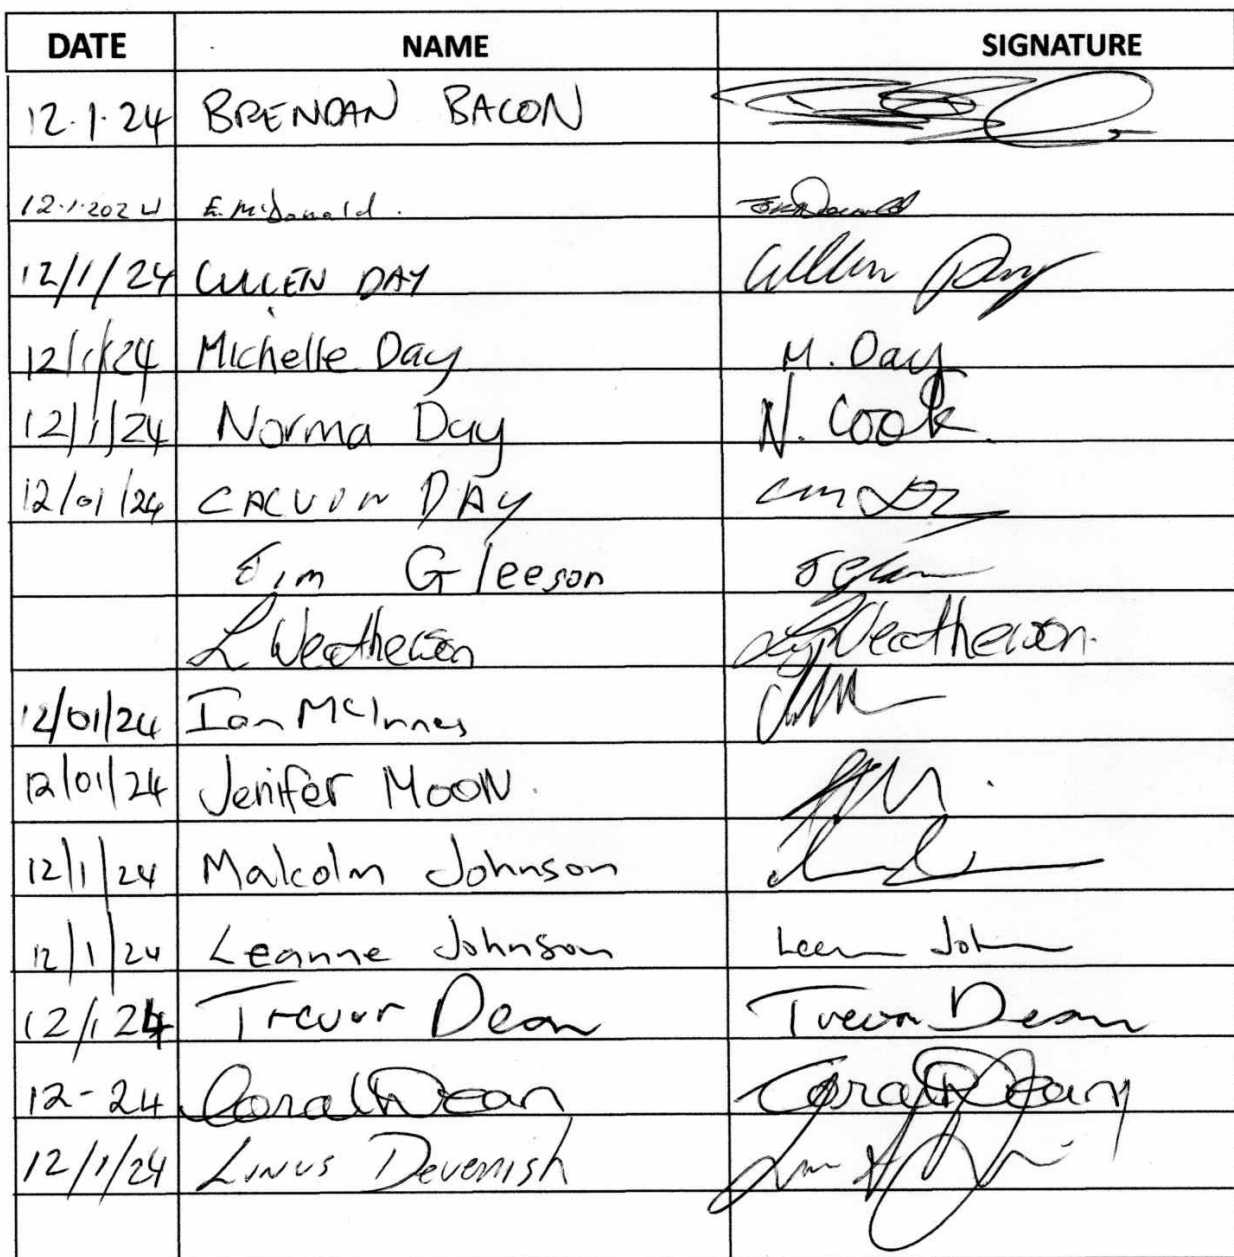 DATE NAME SIGNATURE
12.1.24 BRENDAN BACON
12.1.2024 E. McDonald.
12/1/24 CULLEN DAY Cullen Day
12/1/24 Michelle Day M. Day
12/1/24 Norma Day N. Cook.
12/01/24 CALVIN DAY
Jim Gleeson
L Weatherson Weatherson.
12/01/24 Ian McInnes
12/01/24 Jenifer MOON.
12/1/24 Malcolm Johnson
12/1/24 Leanne Johnson
12/1 24 Trevor Dean Trevor Dean
12-24 Coral Dean Coral Dean
12/1/24 LINUS Devenish